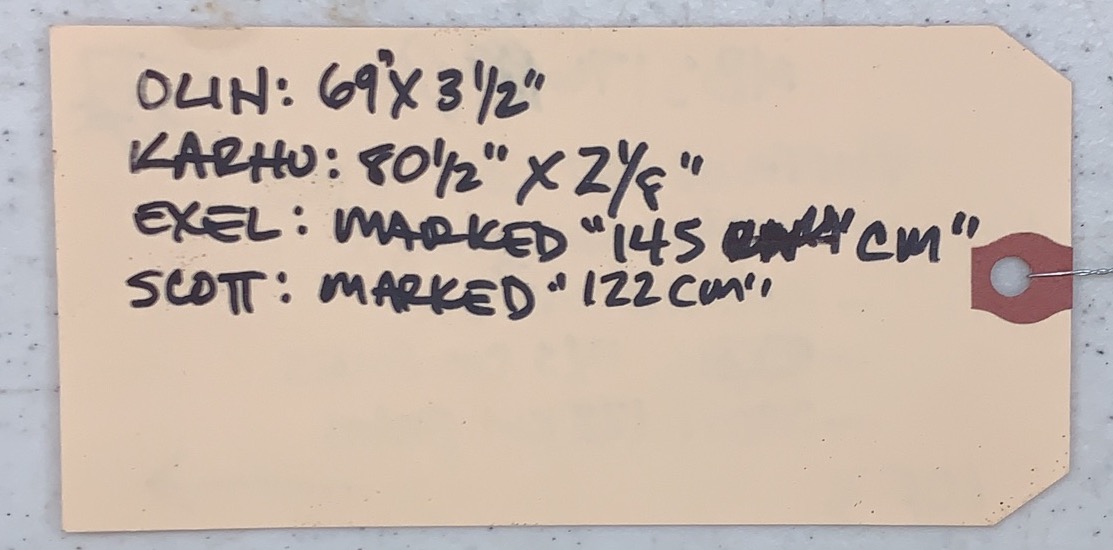 OLIN: 69" X 3 1/2"
KARHU: 80 1/2" X 2 1/8"
EXEL: MARKED "145 CM"
SCOTT: MARKED "122 cm"